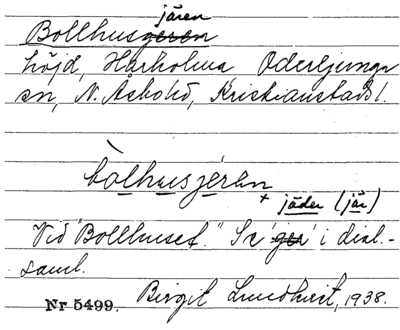 jären
Bollhusgeren
höjd, Harholma Oderljunga
sn, N. Åsbo hd, Kristianstads l.
bòlhusjèren
+ jäder (jär)
Vid "Bollhuset." Se 'ger' i dial.-
saml.
Nr 5499. Birgit Lundkvist, 1938.